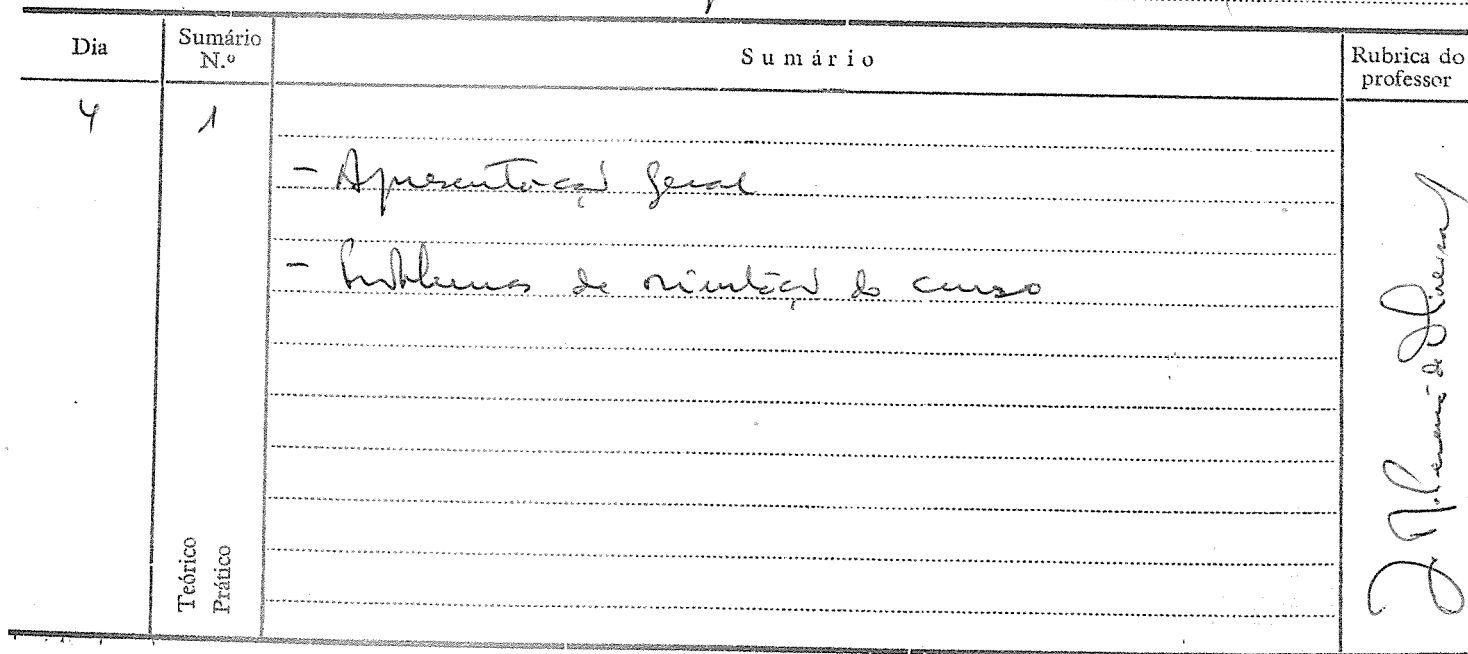 Dia
Sumário N.º
Sumário
Rubrica do professor
4
1
- Apresentação geral
- Problemas de orientação do curso
Teórico
Prático